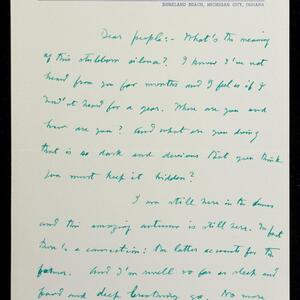 DUNELAND BEACH, MICHIGAN CITY, INDIANA
Dear people:- What's the meaning
of this stubborn silence? I know I've not
heard from you for months and I feel as if I
hadn't heard for a year. Where are you and
how are you? And what are you doing
that is so dark and devious that you think
you must keep it hidden?
I am still here in the dunes
and this amazing autumn is still here. In fact
there's a connection: the latter accounts for the
former. And I'm well so far as sleep and
food and deep breathing go. No more